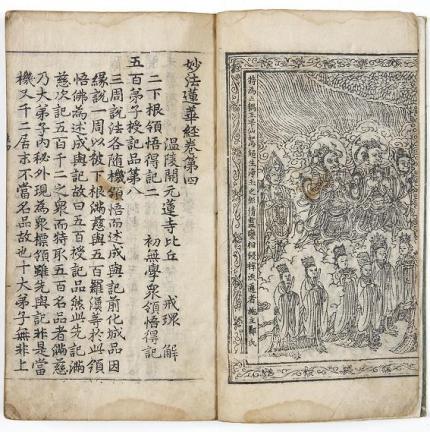 特為
妙法蓮華經卷第四
溫陵開元蓮寺比丘 戒環 解
二下根領悟得記二 初無學衆領悟得記
五百弟子授記品第八
三周說法各隨機領悟而述成與記前化城品因
緣說一周以被下根滿慈與五百羅漢等於此領
悟佛為述成與記故曰五百授記品然此先記滿
慈次記五百千二之衆而特取五百名品者滿慈
乃大弟子內秘外現為衆標領雖先與記非是當
機又千二居不當名品故也十大弟子無非上